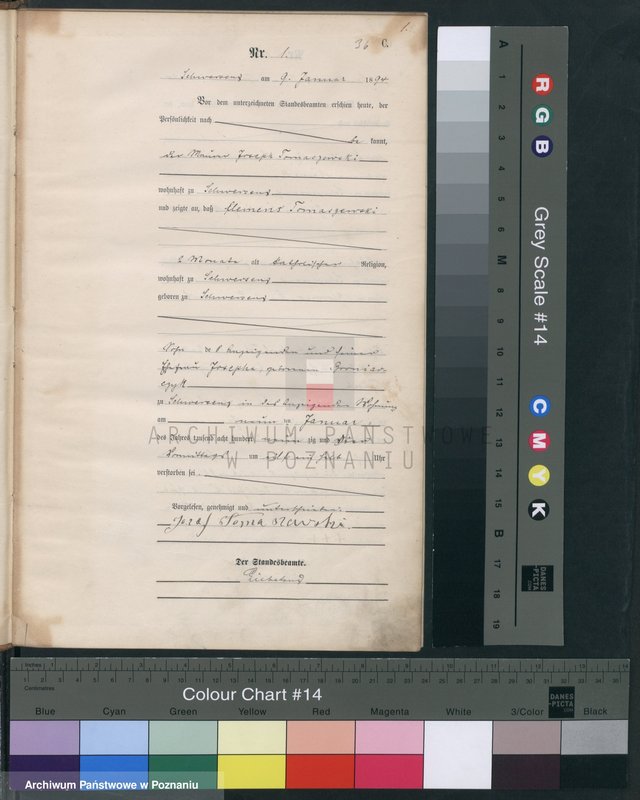 1.
36 C.
Nr. 1.
Schwersenz am 9. Januar 1894
Vor dem unterzeichneten Standesbeamten erschien heute, der
Persönlichkeit nach
be kannt,
der Maurer Joseph Tomaszewski
wohnhaft zu Schwersenz
und zeigte an, daß Clemens Tomaszewski
2 Monate alt katholischer Religion,
wohnhaft zu Schwersenz
geboren zu Schwersenz
Sohn des Anzeigenden und seiner
Ehefrau Josepha, geborenen
zu Schwersenz in des Anzeigenden Wohnung
am neunten Januar
des Jahres tausend acht hundert zig und vier
Vormittags um Uhr
verstorben sei.
Vorgelesen, genehmigt und unterschrieben.
Jozef Tomaszewski
Der Standesbeamte.
ARCHIWUM PAŃSTWOWE
W POZNANIU
A 1 2 3 4 5 6 M 8 9 10 11 12 13 14 15 B 17 18 19
R G B
Grey Scale #14
C M Y K
DANES
-PICTA
.COM
Inches 1 2 3 4 5 6 7 8 9 10 11 12 13 14
Centimetres
Colour Chart #14
DANES
-PICTA
.COM
Blue Cyan Green Yellow Red Magenta White 3/Color Black
Archiwum Państwowe w Poznaniu